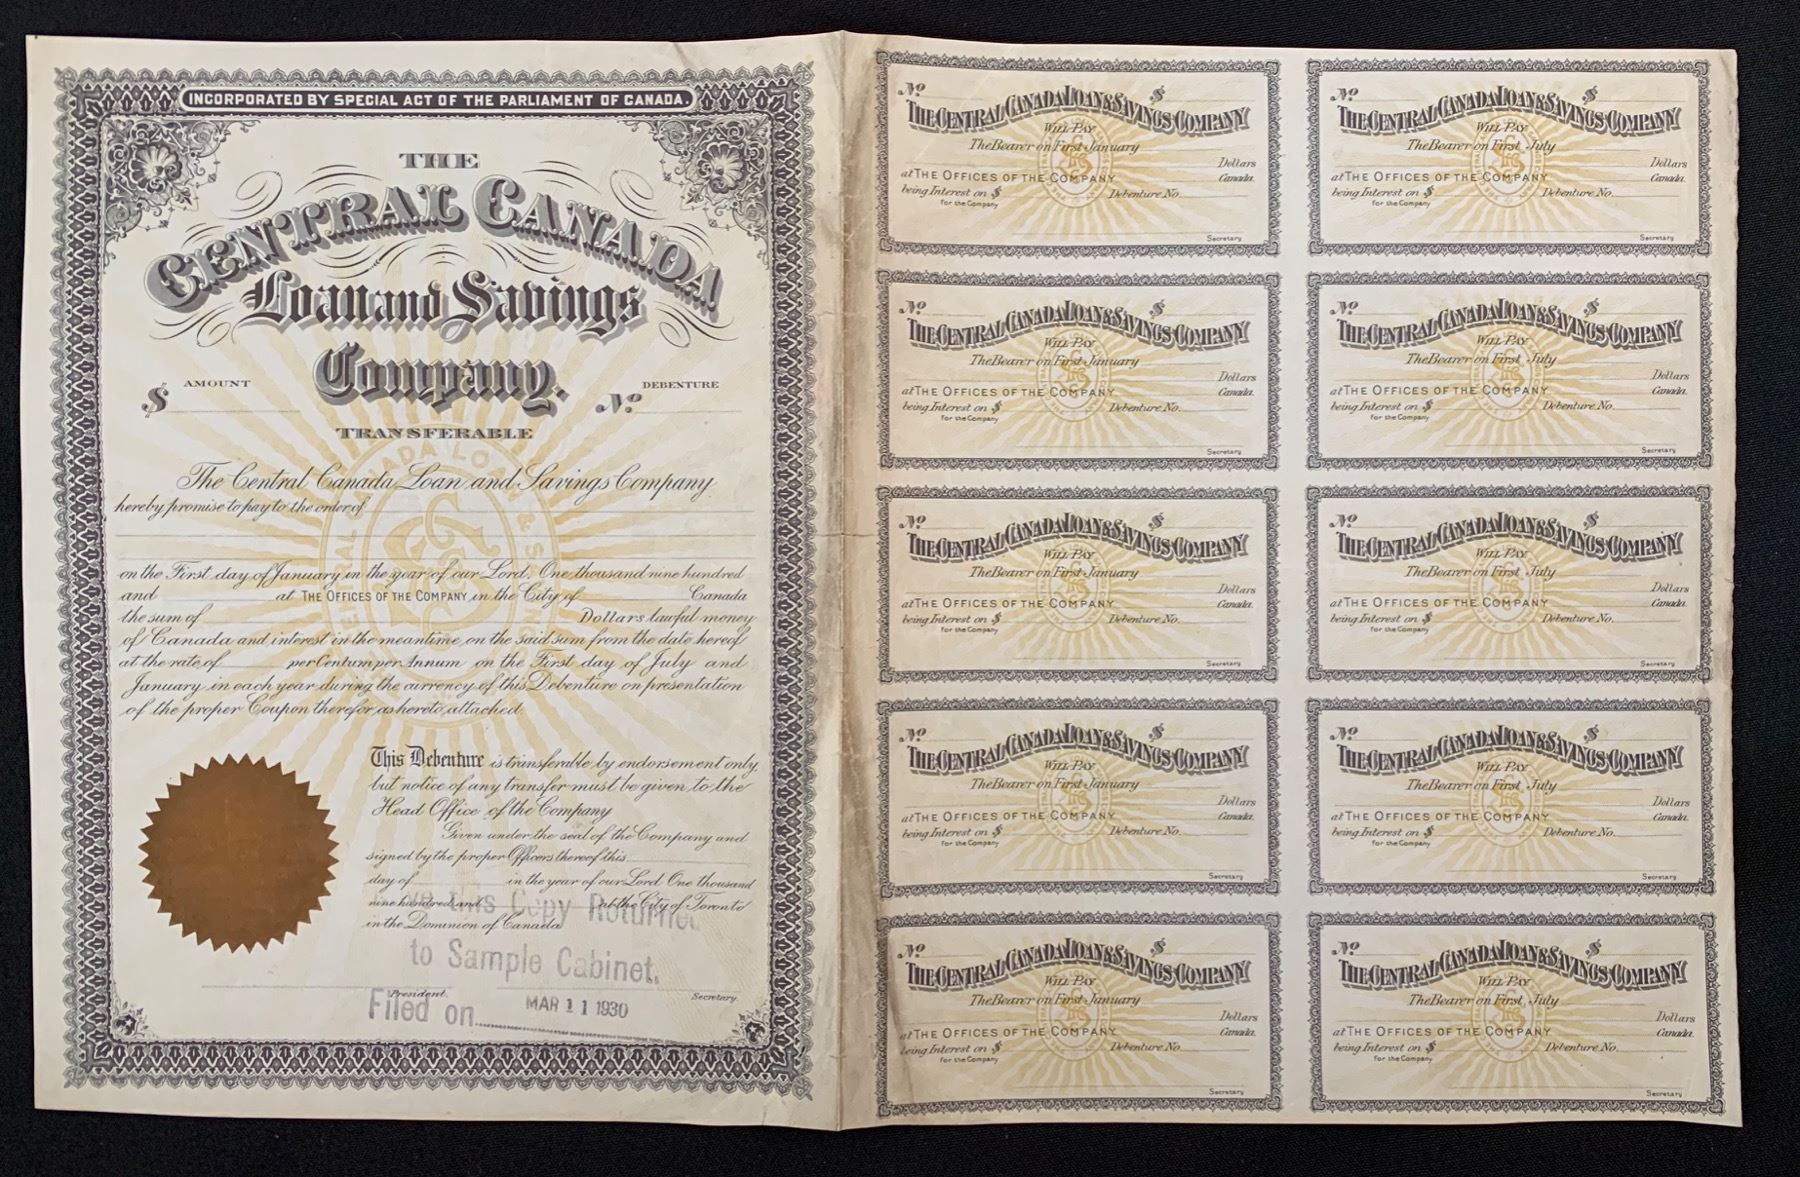 INCORPORATED BY SPECIAL ACT OF THE PARLIAMENT OF CANADA.
THE
CENTRAL CANADA
Loan and Savings
Company.
$ AMOUNT
DEBENTURE
No
TRANSFERABLE
The Central Canada Loan and Savings Company
hereby promise to pay to the order of
on the First day of January in the year of our Lord, One thousand nine hundred
and at THE OFFICES OF THE COMPANY in the City of Canada
the sum of Dollars lawful money
of Canada and interest in the meantime on the said sum from the date hereof
at the rate of per Centum per Annum on the First day of July and
January in each year during the currency of this Debenture on presentation
of the proper Coupon therefor as hereto attached.
This Debenture is transferable by endorsement only,
but notice of any transfer must be given to the
Head Office of the Company
Given under the seal of the Company and
signed by the proper Officers thereof this
day of in the year of our Lord One thousand
nine hundred and at the City of Toronto
in the Dominion of Canada
this Copy Returned
to Sample Cabinet.
President. Secretary.
Filed on MAR 11 1930
CENTRAL CANADA LOAN & SAVINGS
No $
THE CENTRAL CANADA LOAN & SAVINGS COMPANY
WILL PAY
The Bearer on First January
Dollars
at THE OFFICES OF THE COMPANY Canada.
being Interest on $ Debenture No.
for the Company
Secretary
No $
THE CENTRAL CANADA LOAN & SAVINGS COMPANY
WILL PAY
The Bearer on First July
Dollars
at THE OFFICES OF THE COMPANY Canada.
being Interest on $ Debenture No.
for the Company
Secretary
No $
THE CENTRAL CANADA LOAN & SAVINGS COMPANY
WILL PAY
The Bearer on First January
Dollars
at THE OFFICES OF THE COMPANY Canada.
being Interest on $ Debenture No.
for the Company
Secretary
No $
THE CENTRAL CANADA LOAN & SAVINGS COMPANY
WILL PAY
The Bearer on First July
Dollars
at THE OFFICES OF THE COMPANY Canada.
being Interest on $ Debenture No.
for the Company
Secretary
No $
THE CENTRAL CANADA LOAN & SAVINGS COMPANY
WILL PAY
The Bearer on First January
Dollars
at THE OFFICES OF THE COMPANY Canada.
being Interest on $ Debenture No.
for the Company
Secretary
No $
THE CENTRAL CANADA LOAN & SAVINGS COMPANY
WILL PAY
The Bearer on First July
Dollars
at THE OFFICES OF THE COMPANY Canada.
being Interest on $ Debenture No.
for the Company
Secretary
No $
THE CENTRAL CANADA LOAN & SAVINGS COMPANY
WILL PAY
The Bearer on First January
Dollars
at THE OFFICES OF THE COMPANY Canada.
being Interest on $ Debenture No.
for the Company
Secretary
No $
THE CENTRAL CANADA LOAN & SAVINGS COMPANY
WILL PAY
The Bearer on First July
Dollars
at THE OFFICES OF THE COMPANY Canada.
being Interest on $ Debenture No.
for the Company
Secretary
No $
THE CENTRAL CANADA LOAN & SAVINGS COMPANY
WILL PAY
The Bearer on First January
Dollars
at THE OFFICES OF THE COMPANY Canada.
being Interest on $ Debenture No.
for the Company
Secretary
No $
THE CENTRAL CANADA LOAN & SAVINGS COMPANY
WILL PAY
The Bearer on First July
Dollars
at THE OFFICES OF THE COMPANY Canada.
being Interest on $ Debenture No.
for the Company
Secretary